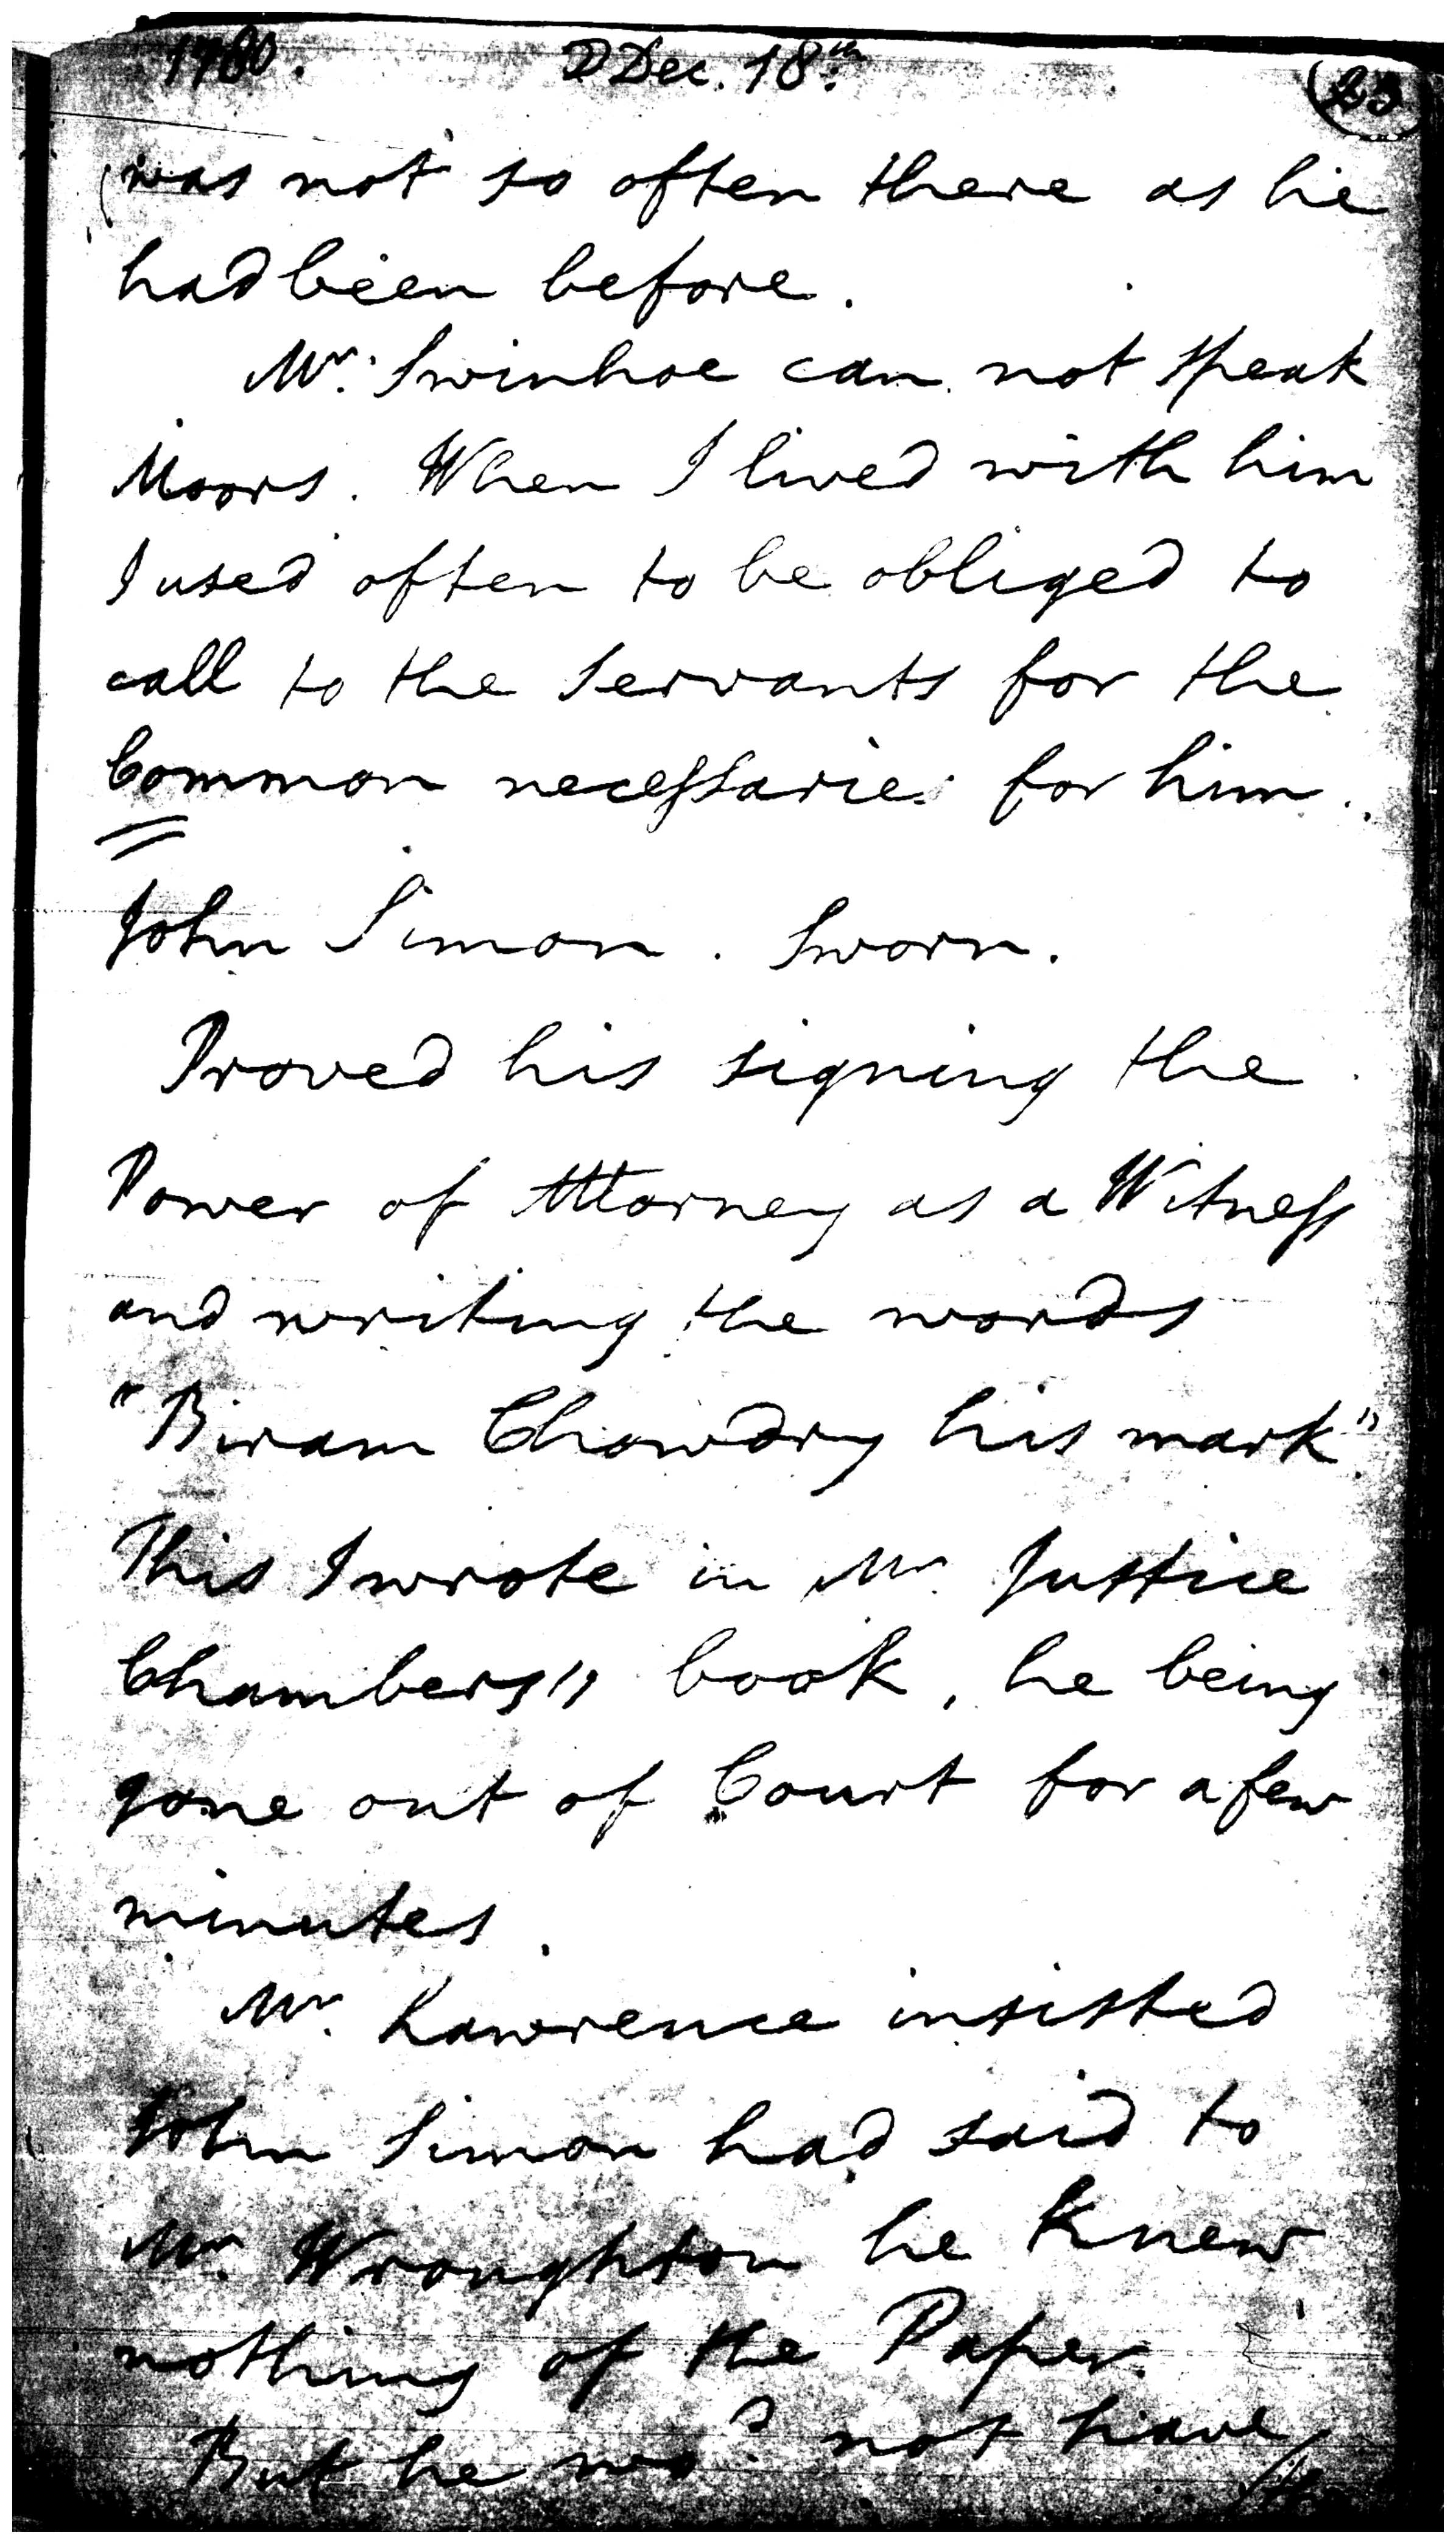 1780. Dec. 18th. 23
was not so often there as he
had been before.
Mr. Swinhoe can not speak
Moors. When I lived with him
I used often to be obliged to
call to the Servants for the
Common necessaries for him.
John Simon. Sworn.
Proved his signing the
Power of Attorney as a Witness
and writing the words
"Biram Chowdry his mark"
This I wrote in Mr Justice
Chambers's book, he being
gone out of Court for a few
minutes.
Mr. Lawrence insisted
John Simon had said to
Mr. Wroughton he knew
nothing of the Paper.
But he wod. not have